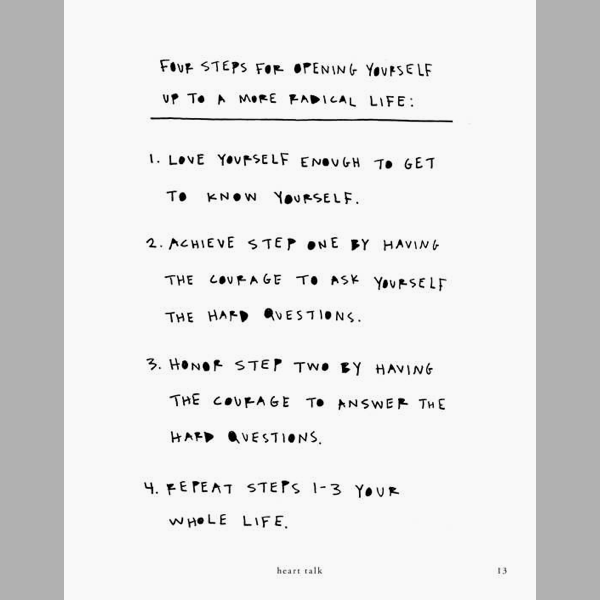 FOUR STEPS FOR OPENING YOURSELF
UP TO A MORE RADICAL LIFE:
1. LOVE YOURSELF ENOUGH TO GET
TO KNOW YOURSELF.
2. ACHIEVE STEP ONE BY HAVING
THE COURAGE TO ASK YOURSELF
THE HARD QUESTIONS.
3. HONOR STEP TWO BY HAVING
THE COURAGE TO ANSWER THE
HARD QUESTIONS.
4. REPEAT STEPS 1-3 YOUR
WHOLE LIFE.
heart talk 13